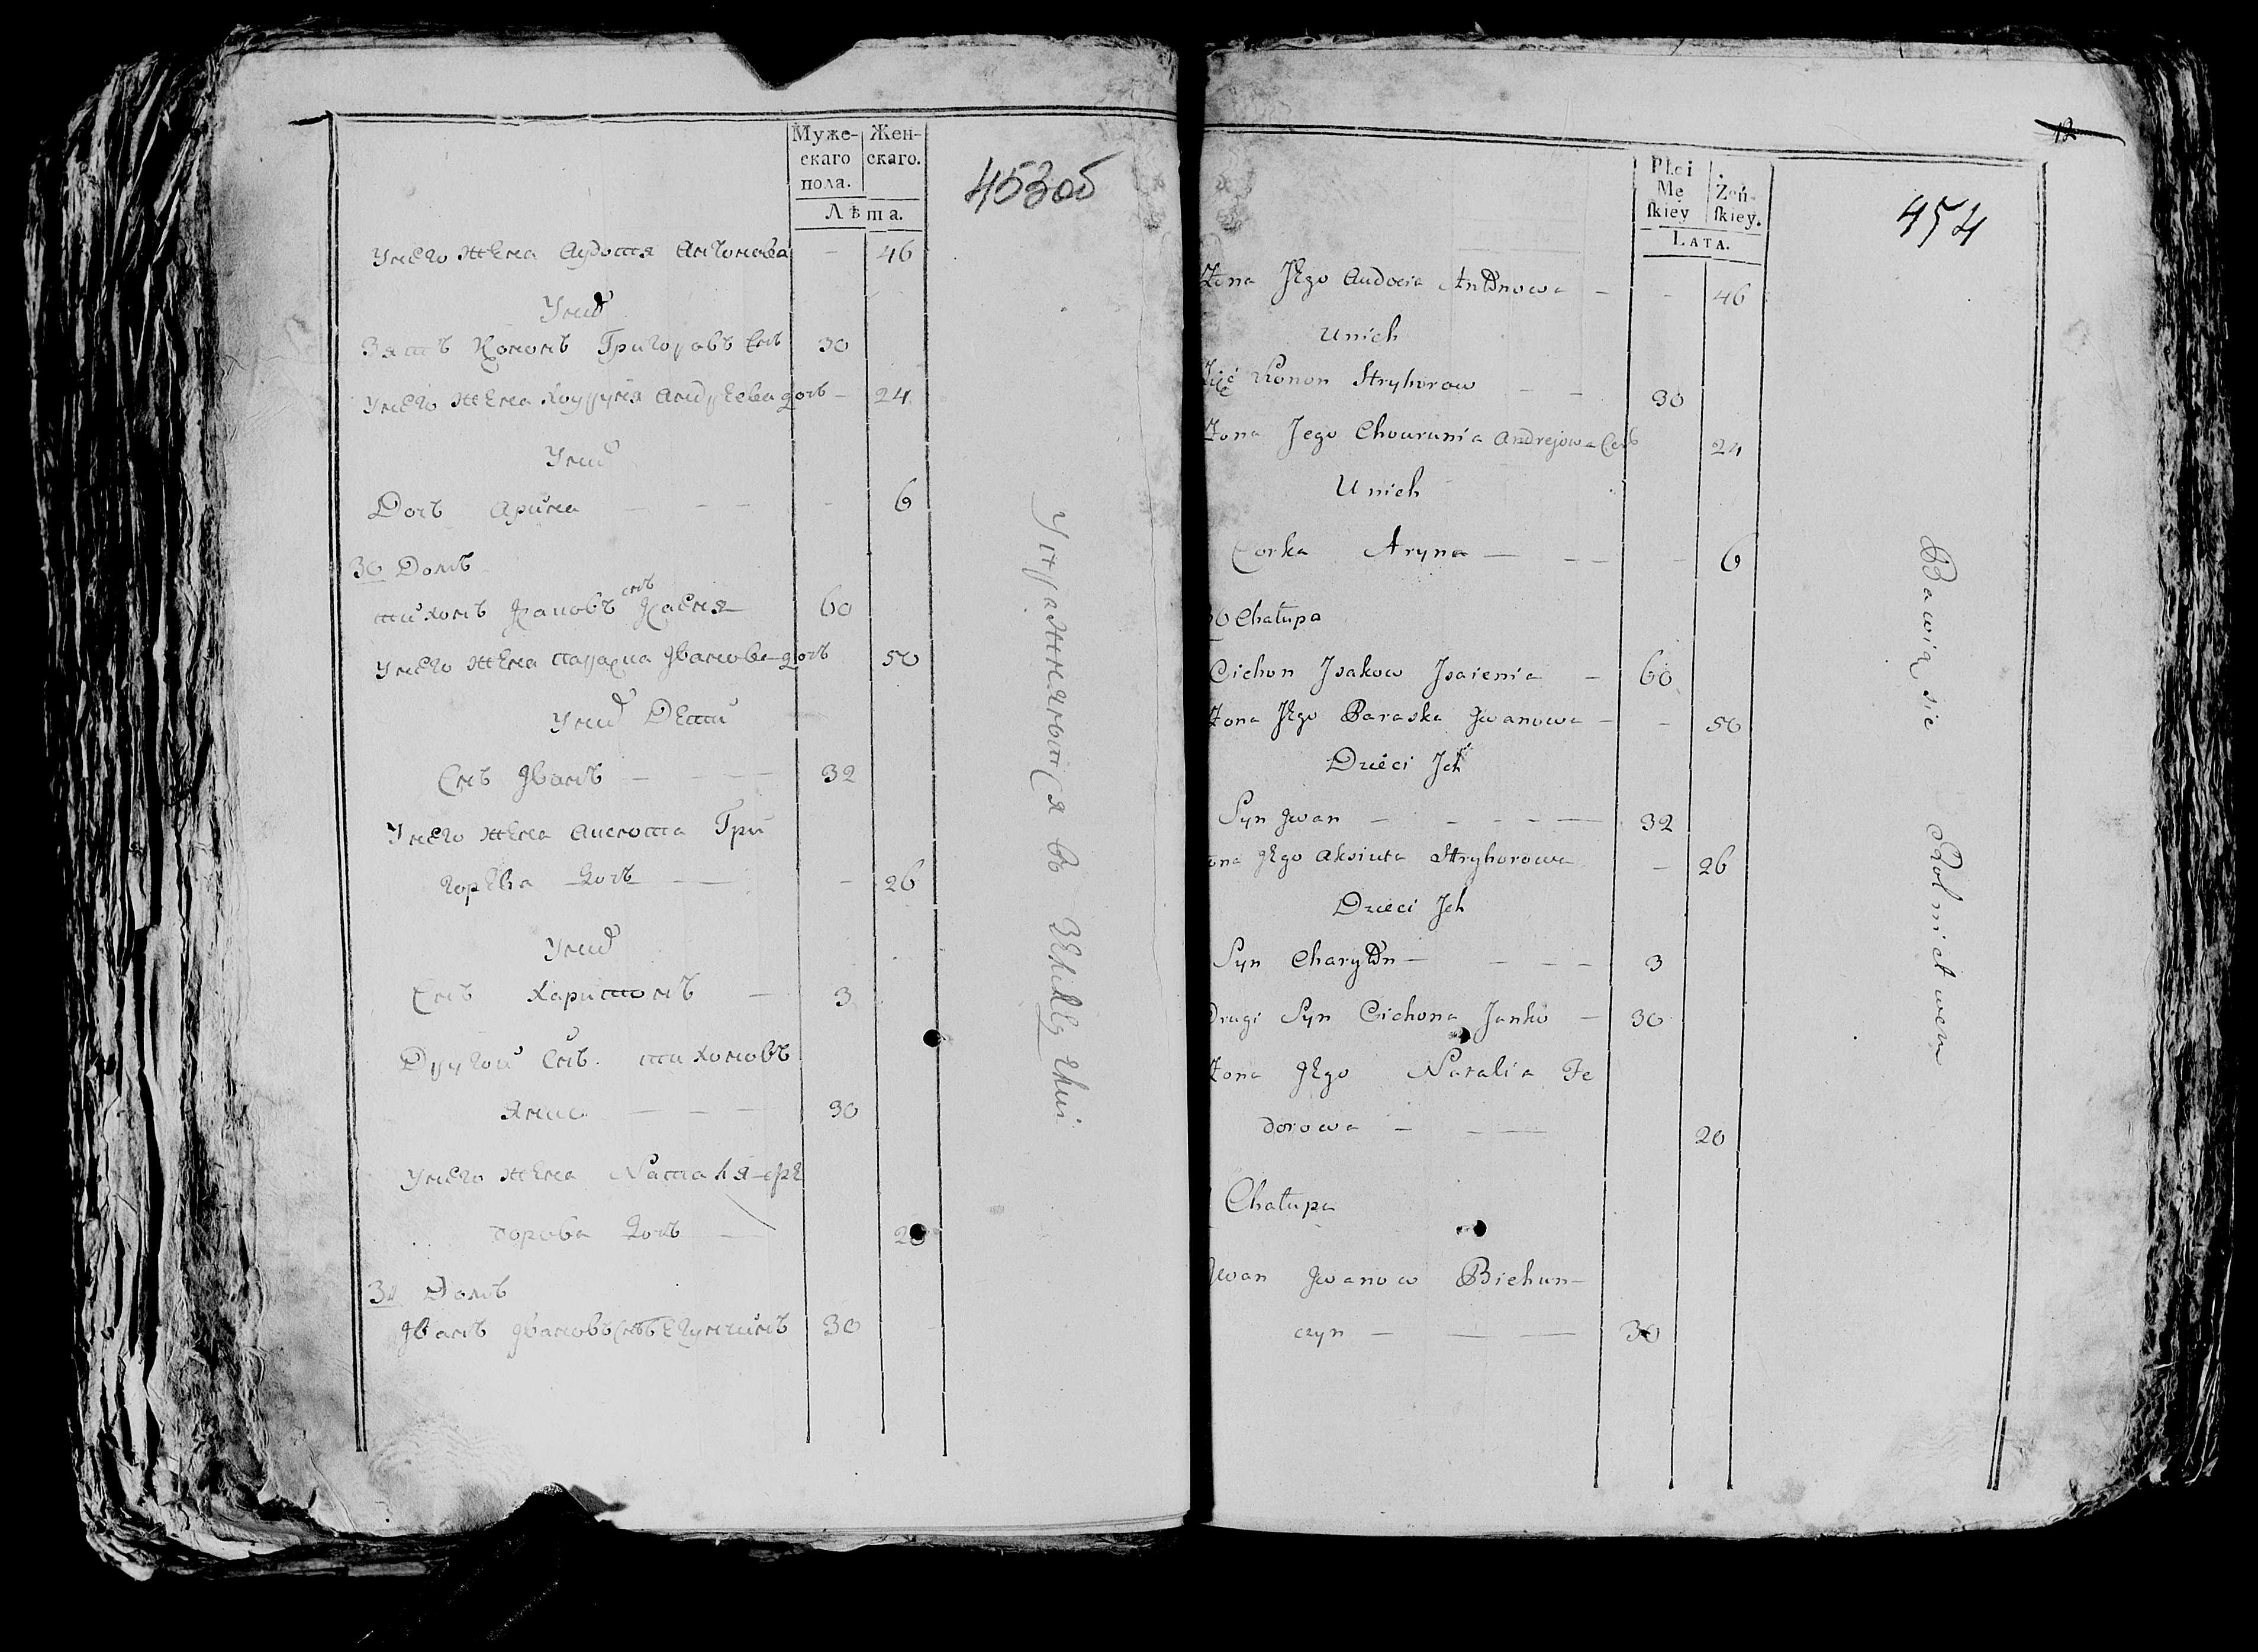 Муже-
скаго
пола.
Жен-
скаго.
Лѣта.
453об
Унего жена Аудотя Антонова — 46
Уних
Зять Кононъ Григоровъ снъ 30
Унего жена Хоуруня Андреева дочь — 24
Уних
Дочъ Арина — — — — 6
30 Домъ
тихонъ Исаковъ снъ Исаеня 60
Унего жена параска Иванова дочъ 50
Уних Дети
Снъ Иванъ — — — 32
Унего жена Аксюта Гри
горева дочъ — — 26
Уних
Снъ Харитонъ — 3
Другой Снъ тихоновъ
Янко — — — 30
Унего жена Наталя Фе
дорова дочъ — 20
31 Домъ
Иванъ Ивановъ Снъ Бегунчинъ 30
Упражняются въ
Płci
Mę
skiey
Żeń-
skiey.
LATA.
12
454
Żona Jego Audocia Antonowa — — 46
Unich
Zięć Konon Hryhorow — — 30
Żona Jego Chourunia Andrejowa Cor 24
Unich
Corka Aryna — — — — 6
30 Chałupa
Cichon Jsakow Jsaienia — 60
Żona Jego Paraska Jwanowa — — 50
Dzieci Jch
Syn Jwan — — — — — 32
Żona Jego Aksiuta Hryhorowa — 26
Dzieci Jch
Syn Charyton — — — — 3
Drugi Syn Cichona Janko — 30
Żona Jego Natalia Fe
dorowa — — — 20
Chałupa
Jwan Jwanow Biehun-
czyn — — — 30
Bawią sie Rolnictwem